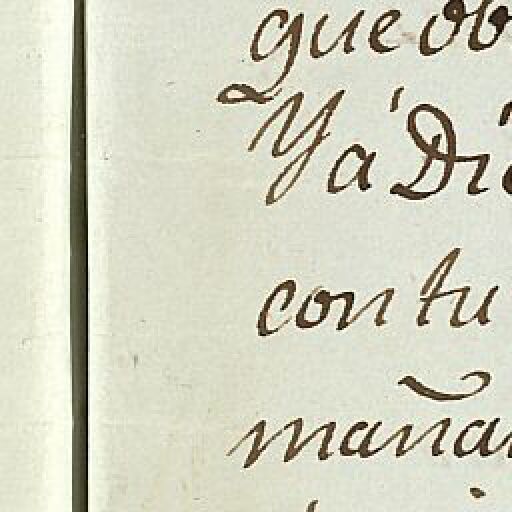 que ob
Ya Dio
con tu
mañan